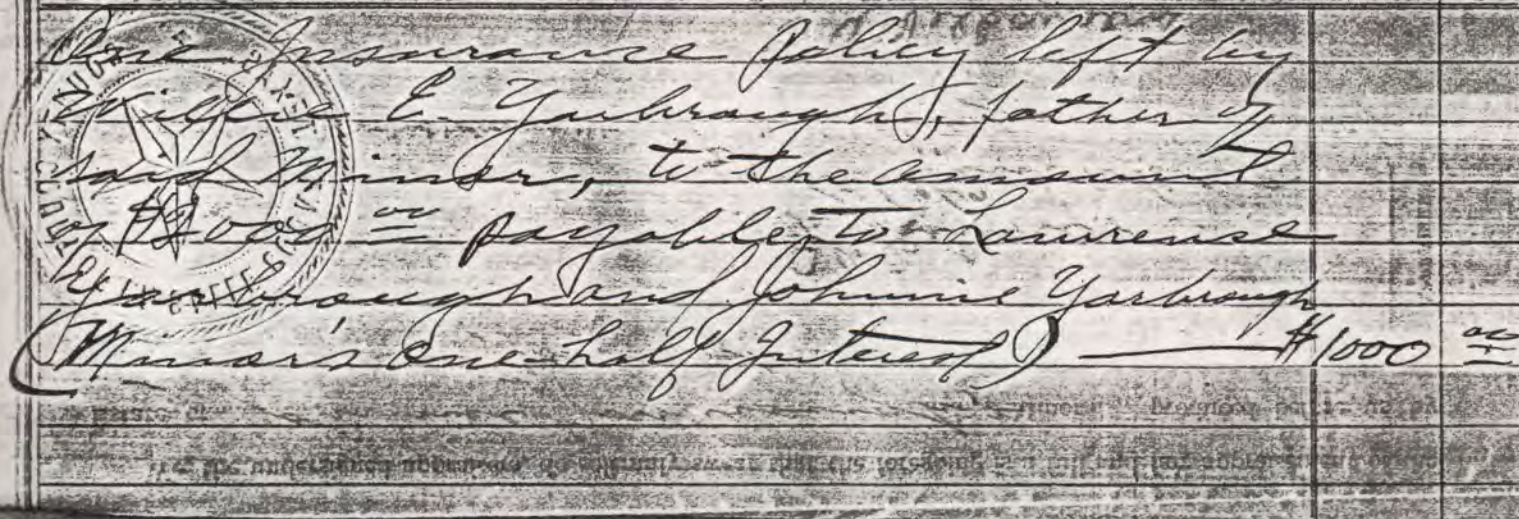 One Insurance Policy left by
Willie E. Yarbrough, father of
said Minor, to the amount
of $2000 00 payable to Lawrense
Yarbrough and Johnnie Yarbrough
(Minor's one-half Interest) — $1000 00